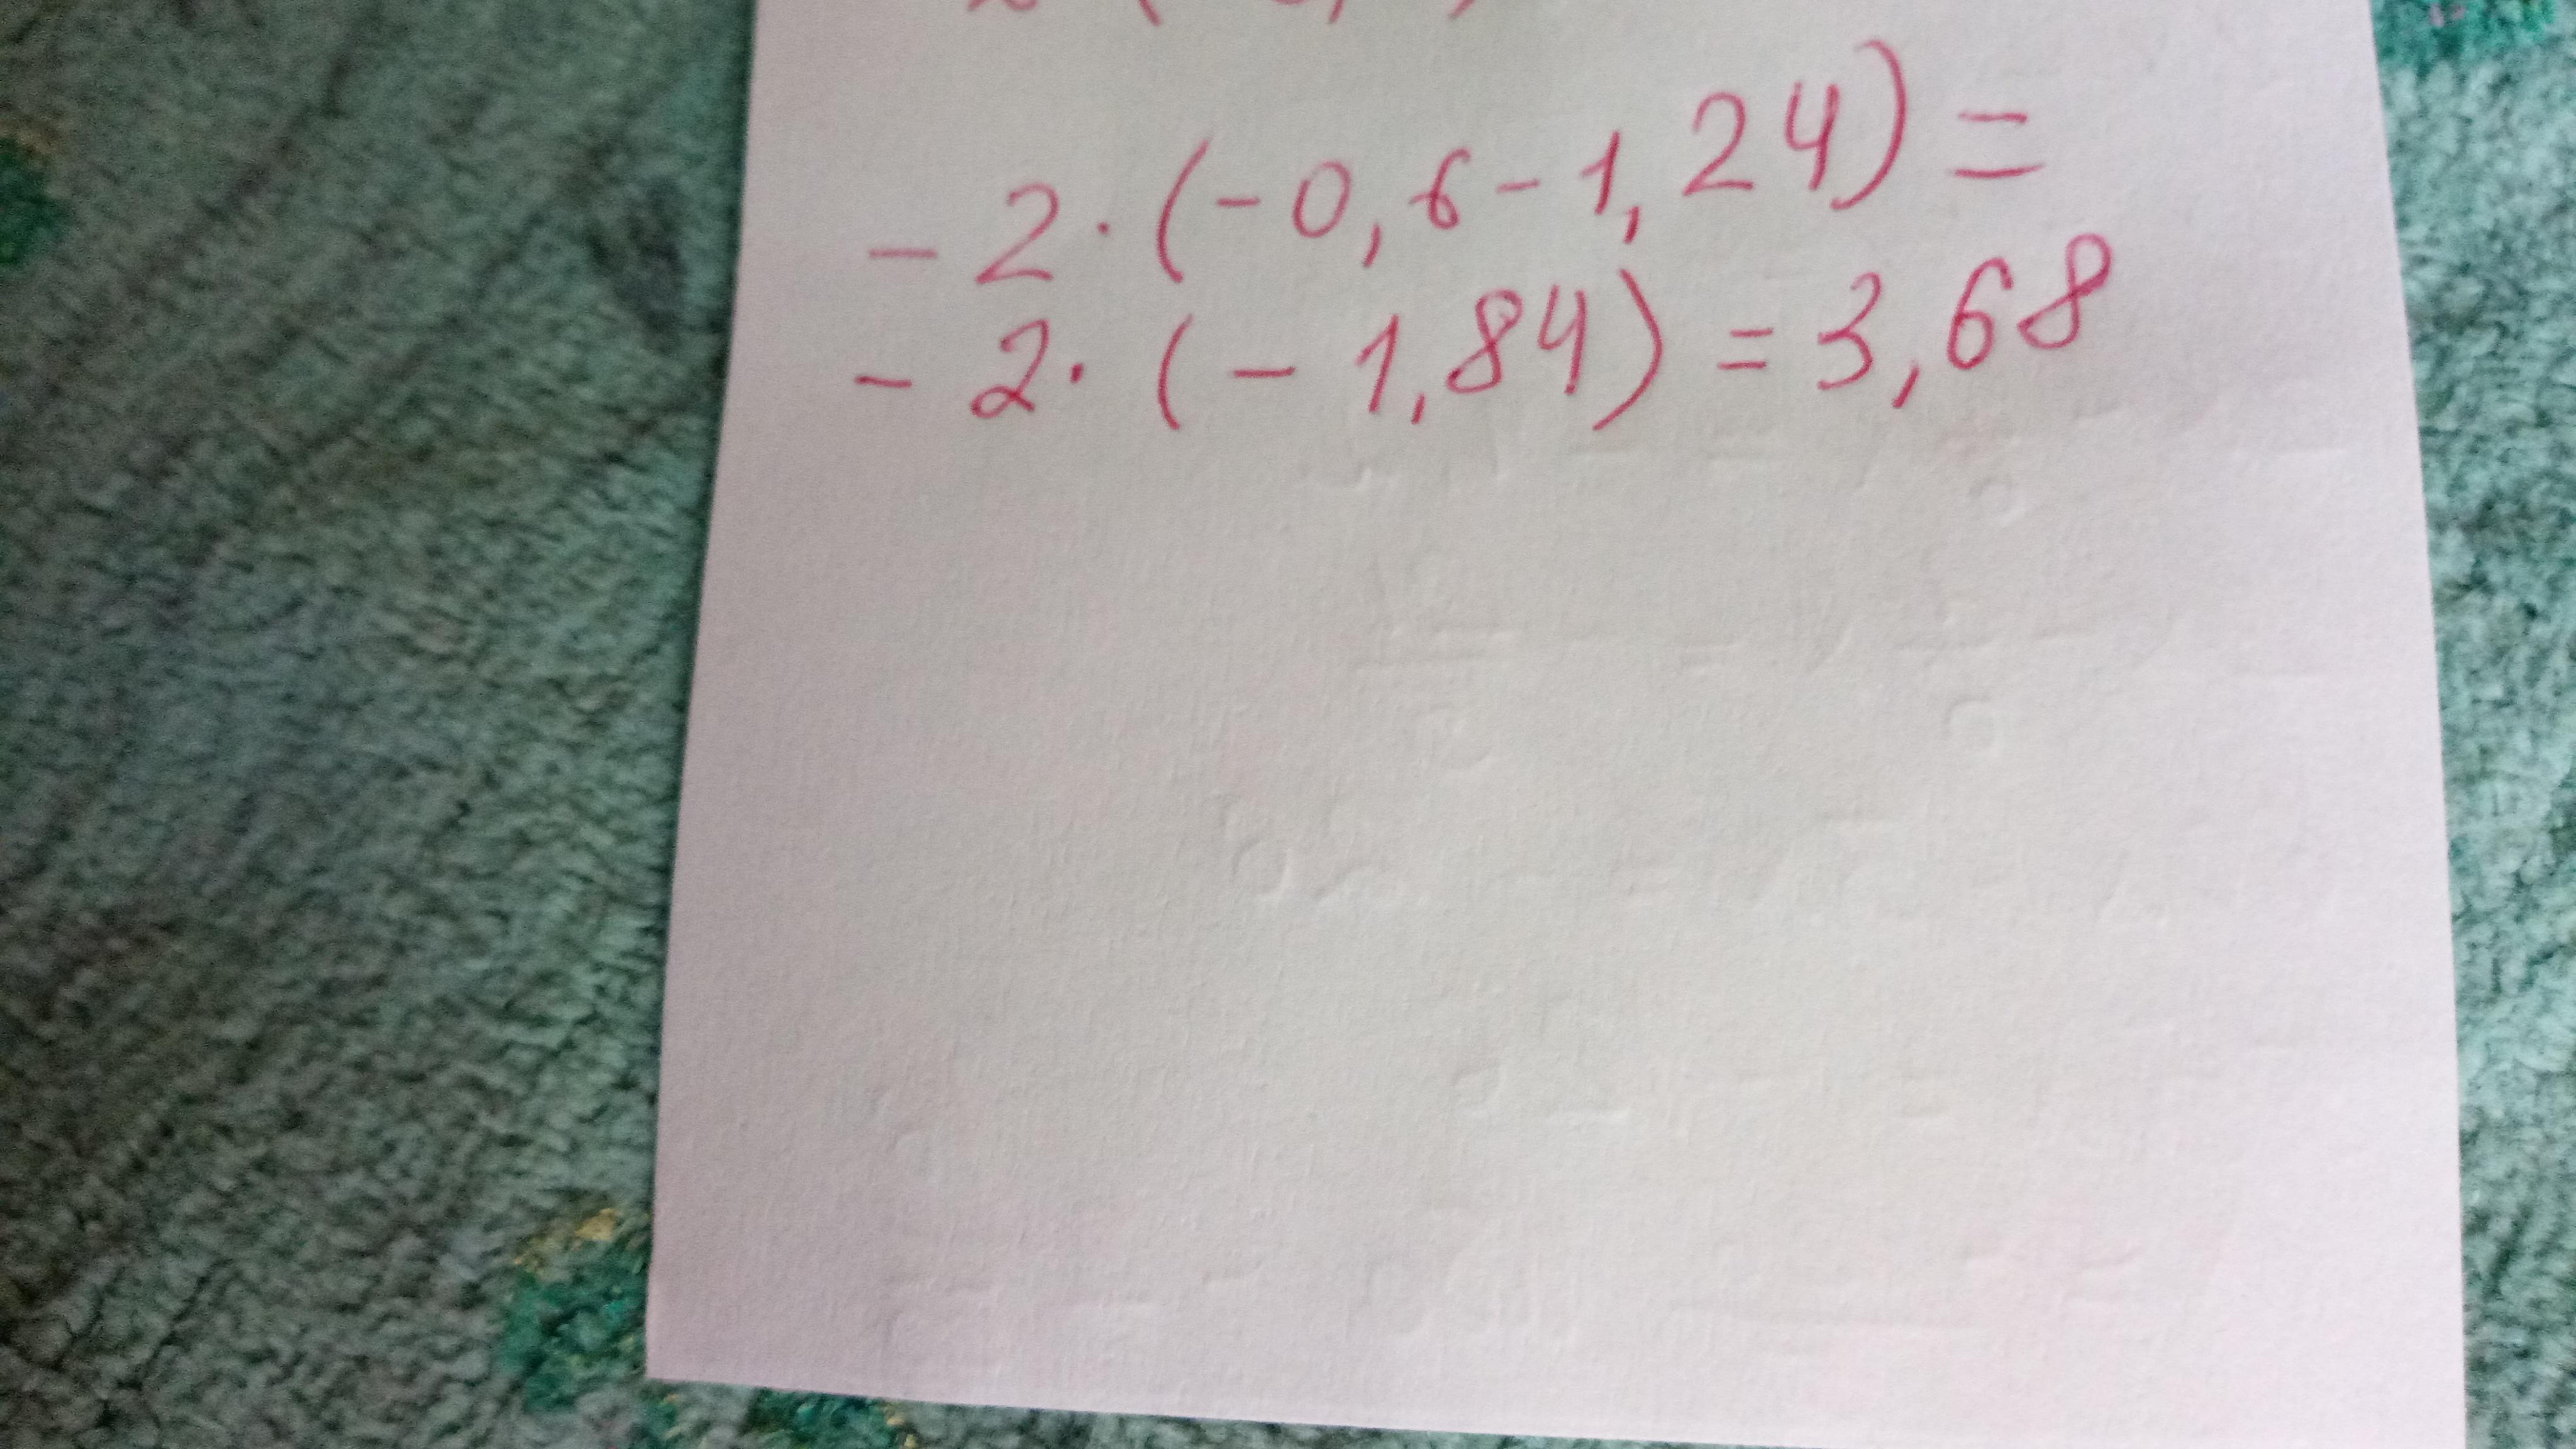 - 2 · (-0,6 - 1,24) =
- 2 · (- 1,84) = 3,68